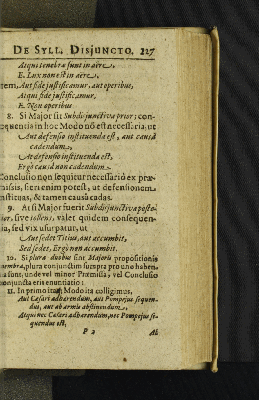 DE SYLL. DISJUNCTO. 227
Atqui tenebræ sunt in aëre,
E. Lux non est in aëre,
tem, Aut fide justificamur, aut operibus,
Atqui fide justificamur,
E. Non operibus
8. Si Major sit Subdisjunctiva prior; con-
sequentis in hoc Modo nō est necessaria, ut
Aut defensio instituenda est, aut causâ
cadendum,
At defensio instituenda est,
Ergò causâ non cadendum.
Conclusio non sequitur necessariò ex præ-
missis, fieri enim potest, ut defensionem
instituas, & tamen causâ cadas.
9. At si Major fuerit Subdisjunctiva poste-
rior, sive tollens, valet quidem consequen-
tia, sed vix usurpatur, ut
Aut sedet Titius, aut accumbit,
Sed sedet, Ergò non accumbit.
10. Si plura duobus sint Majoris propositionis
membra, plura conjunctim sumpta pro uno haben-
da sunt, unde vel minor Præmissa, vel Conclusio
conjuncta erit enuntiatio:
11. In primo itaq; Modo ita colligimus,
Aut Cæsari adhærendum, aut Pompejus sequen-
dus, aut ab armis abstinendum,
Atqui nec Cæsari adhærendum, nec Pompejus se-
quendus est,
P 2 Ab